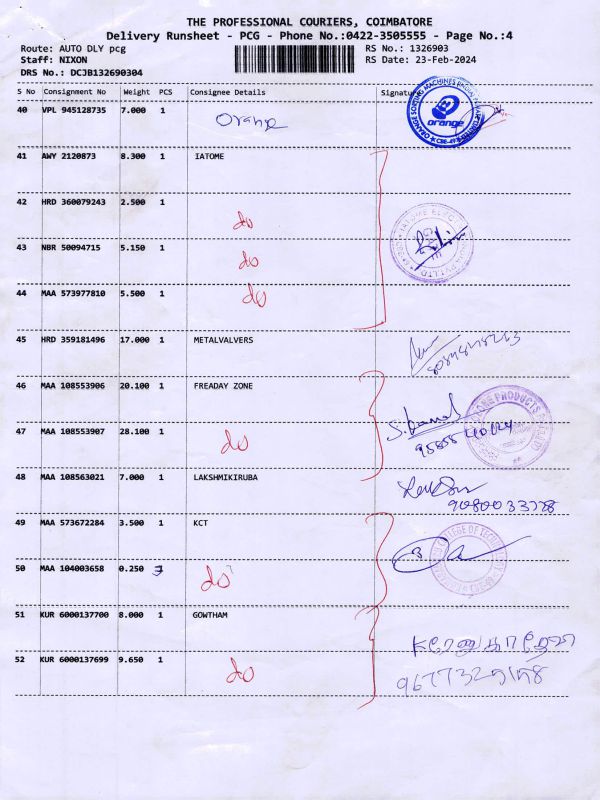 THE PROFESSIONAL COURIERS, COIMBATORE
Delivery Runsheet - PCG - Phone No.:0422-3505555 - Page No.:4
Route: AUTO DLY pcg RS No.: 1326903
Staff: NIXON RS Date: 23-Feb-2024
DRS No.: DCJB132690304
S No Consignment No Weight PCS Consignee Details Signature
40 VPL 945128735 7.000 1 Orange
orange
41 AWY 2120873 8.300 1 IATOME
42 HRD 360079243 2.500 1 do
43 NBR 50094715 5.150 1 do
44 MAA 573977810 5.500 1 do
45 HRD 359181496 17.000 1 METALVALVERS
46 MAA 108553906 20.100 1 FREADAY ZONE
47 MAA 108553907 28.100 1 do
48 MAA 108563021 7.000 1 LAKSHMIKIRUBA
9080033778
49 MAA 573672284 3.500 1 KCT
50 MAA 104003658 0.250 do
51 KUR 6000137700 8.000 1 GOWTHAM
52 KUR 6000137699 9.650 1 do